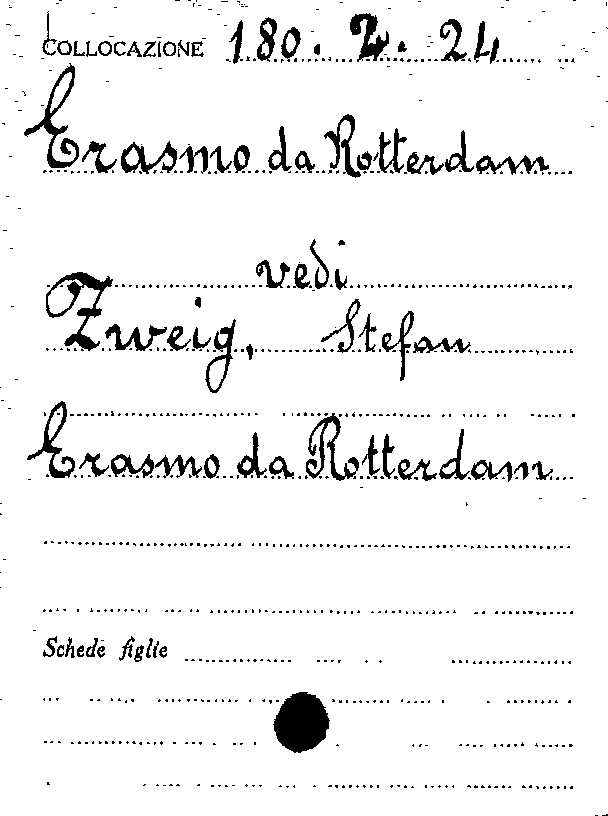 COLLOCAZIONE 180. Z. 24
Erasmo da Rotterdam
vedi
Zweig, Stefan
Erasmo da Rotterdam
Schede figlie